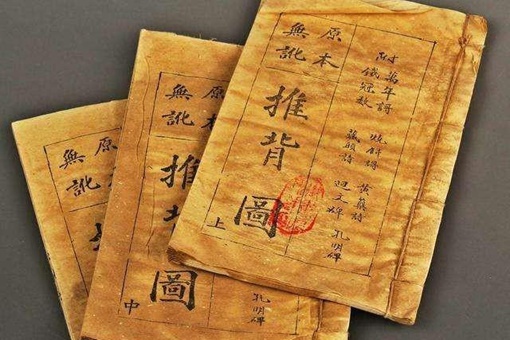 附 萬年謌 燒餅謌 黃蘗詩
鐵冠數 藏頭詩 迴文碑 孔明碑
原本
無訛
推背圖
上
原本
無訛
推背圖
中
孔明碑
原本
無訛